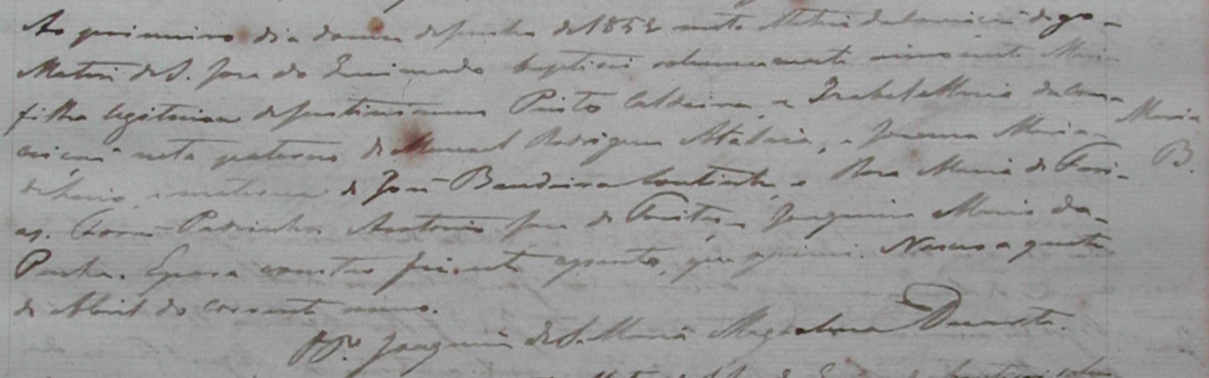 Ao primeiro dia do mes de Junho de 1852 nesta Matriz da Conceição digo
Matriz de S. Jose do Queimado baptisei solemnemente a innocente Maria
filha legitima de Pinto Caldeira, e Izabel Maria da Con-
ceição neta paterna de Manoel Rodrigues Atalaia, e Joanna Maria
e materna de José Bandeira e Rosa Maria de Fari-
as. Foram Padrinhos Antonio Jose de Freitas, Joaquina Maria da
Penha. E para constar fiz este assento, que assignei. Nasceo a quatro
de Abril do corrente anno.
Joaquim de S. Maria Magdalena Duarte.
Maria
B.